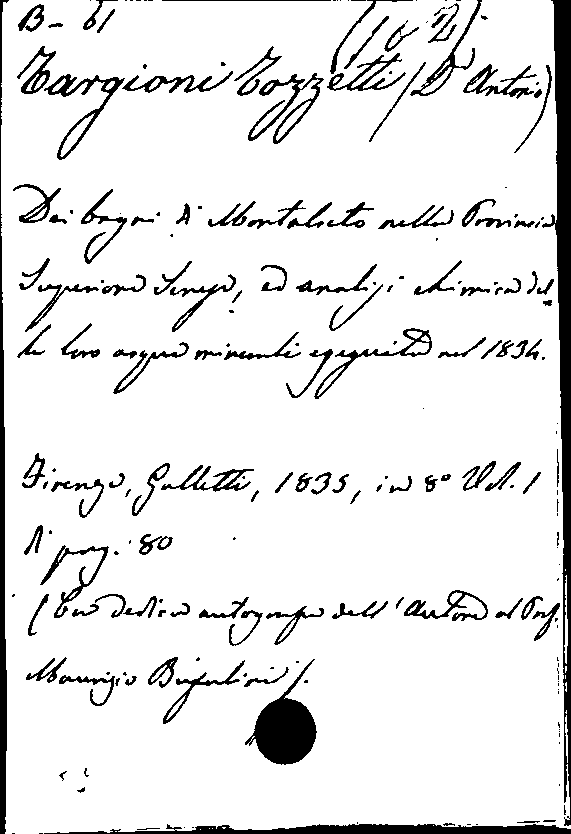 B - 61 (162).
Targioni Tozzetti (Dr Antonio)
Dei bagni di Montalceto nella Provincia
Superiore Senese, ed analisi chimica del-
le loro acque minerali eseguita nel 1834.
Firenze, Galletti, 1835, in 8° Vol. 1
di pag. 80
(Con dedica autografa dell'Autore al Prof.
Maurizio Bufalini).